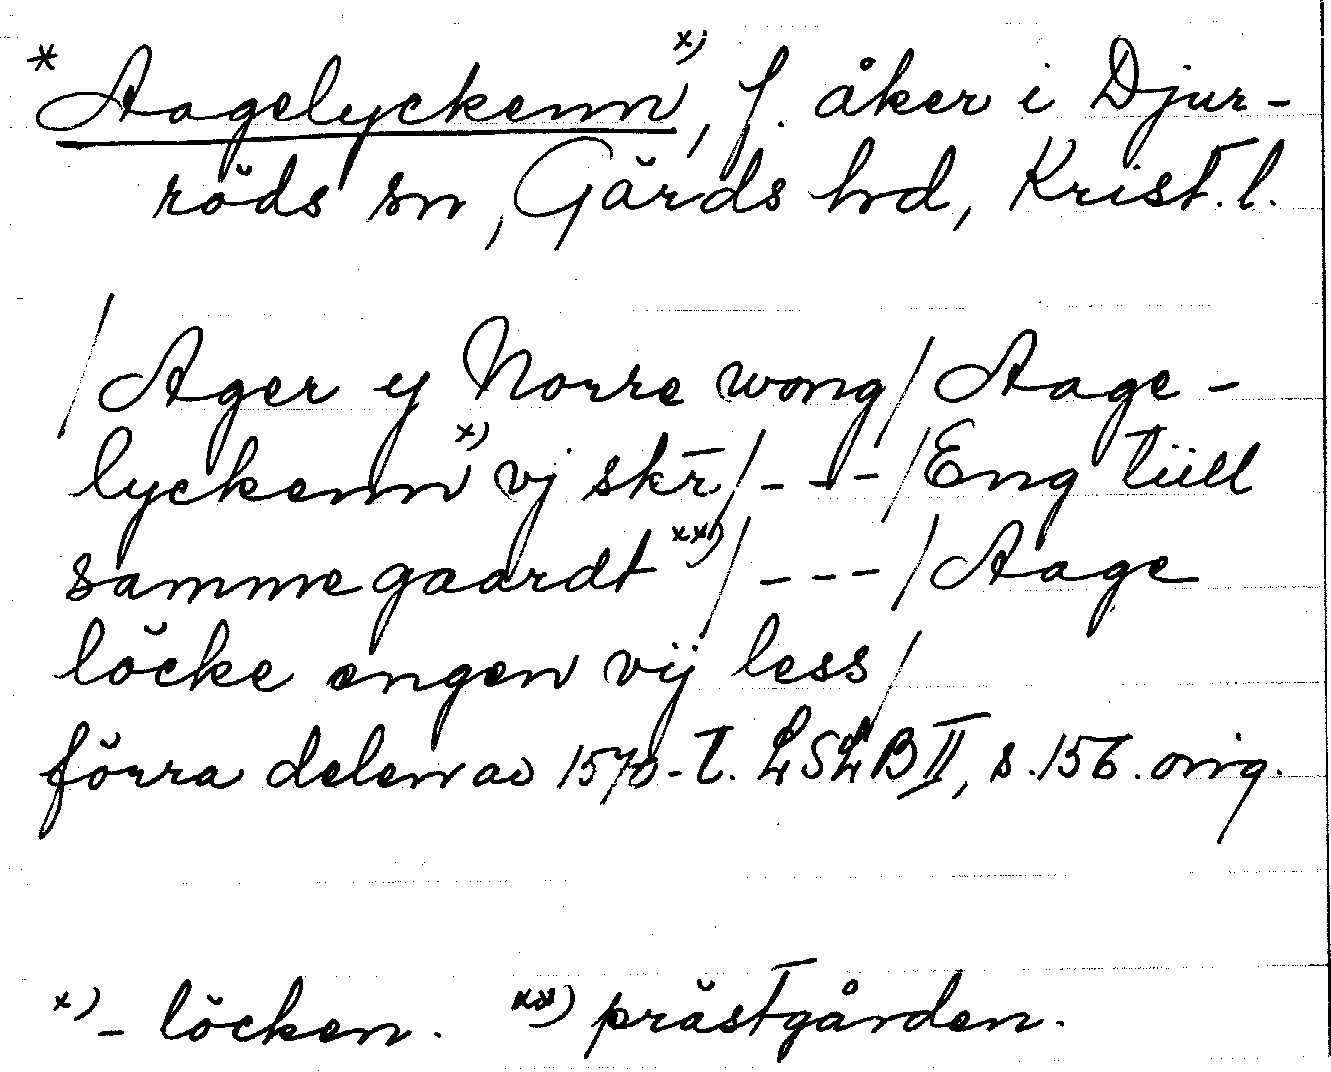 * Aagelyckenn x), f. åker i Djur-
röds sn, Gärds hd, Krist. l.
/Ager y Norre wong/ Aage-
lyckenn x) vj skr/ - - - /Eng tüll
samme gaardt xx)/ - - - /Aage
löcke engen vij less/
förra delen av 1570-t. LSLB II, s. 156. orig.
x) - löcken. xx) prästgården.